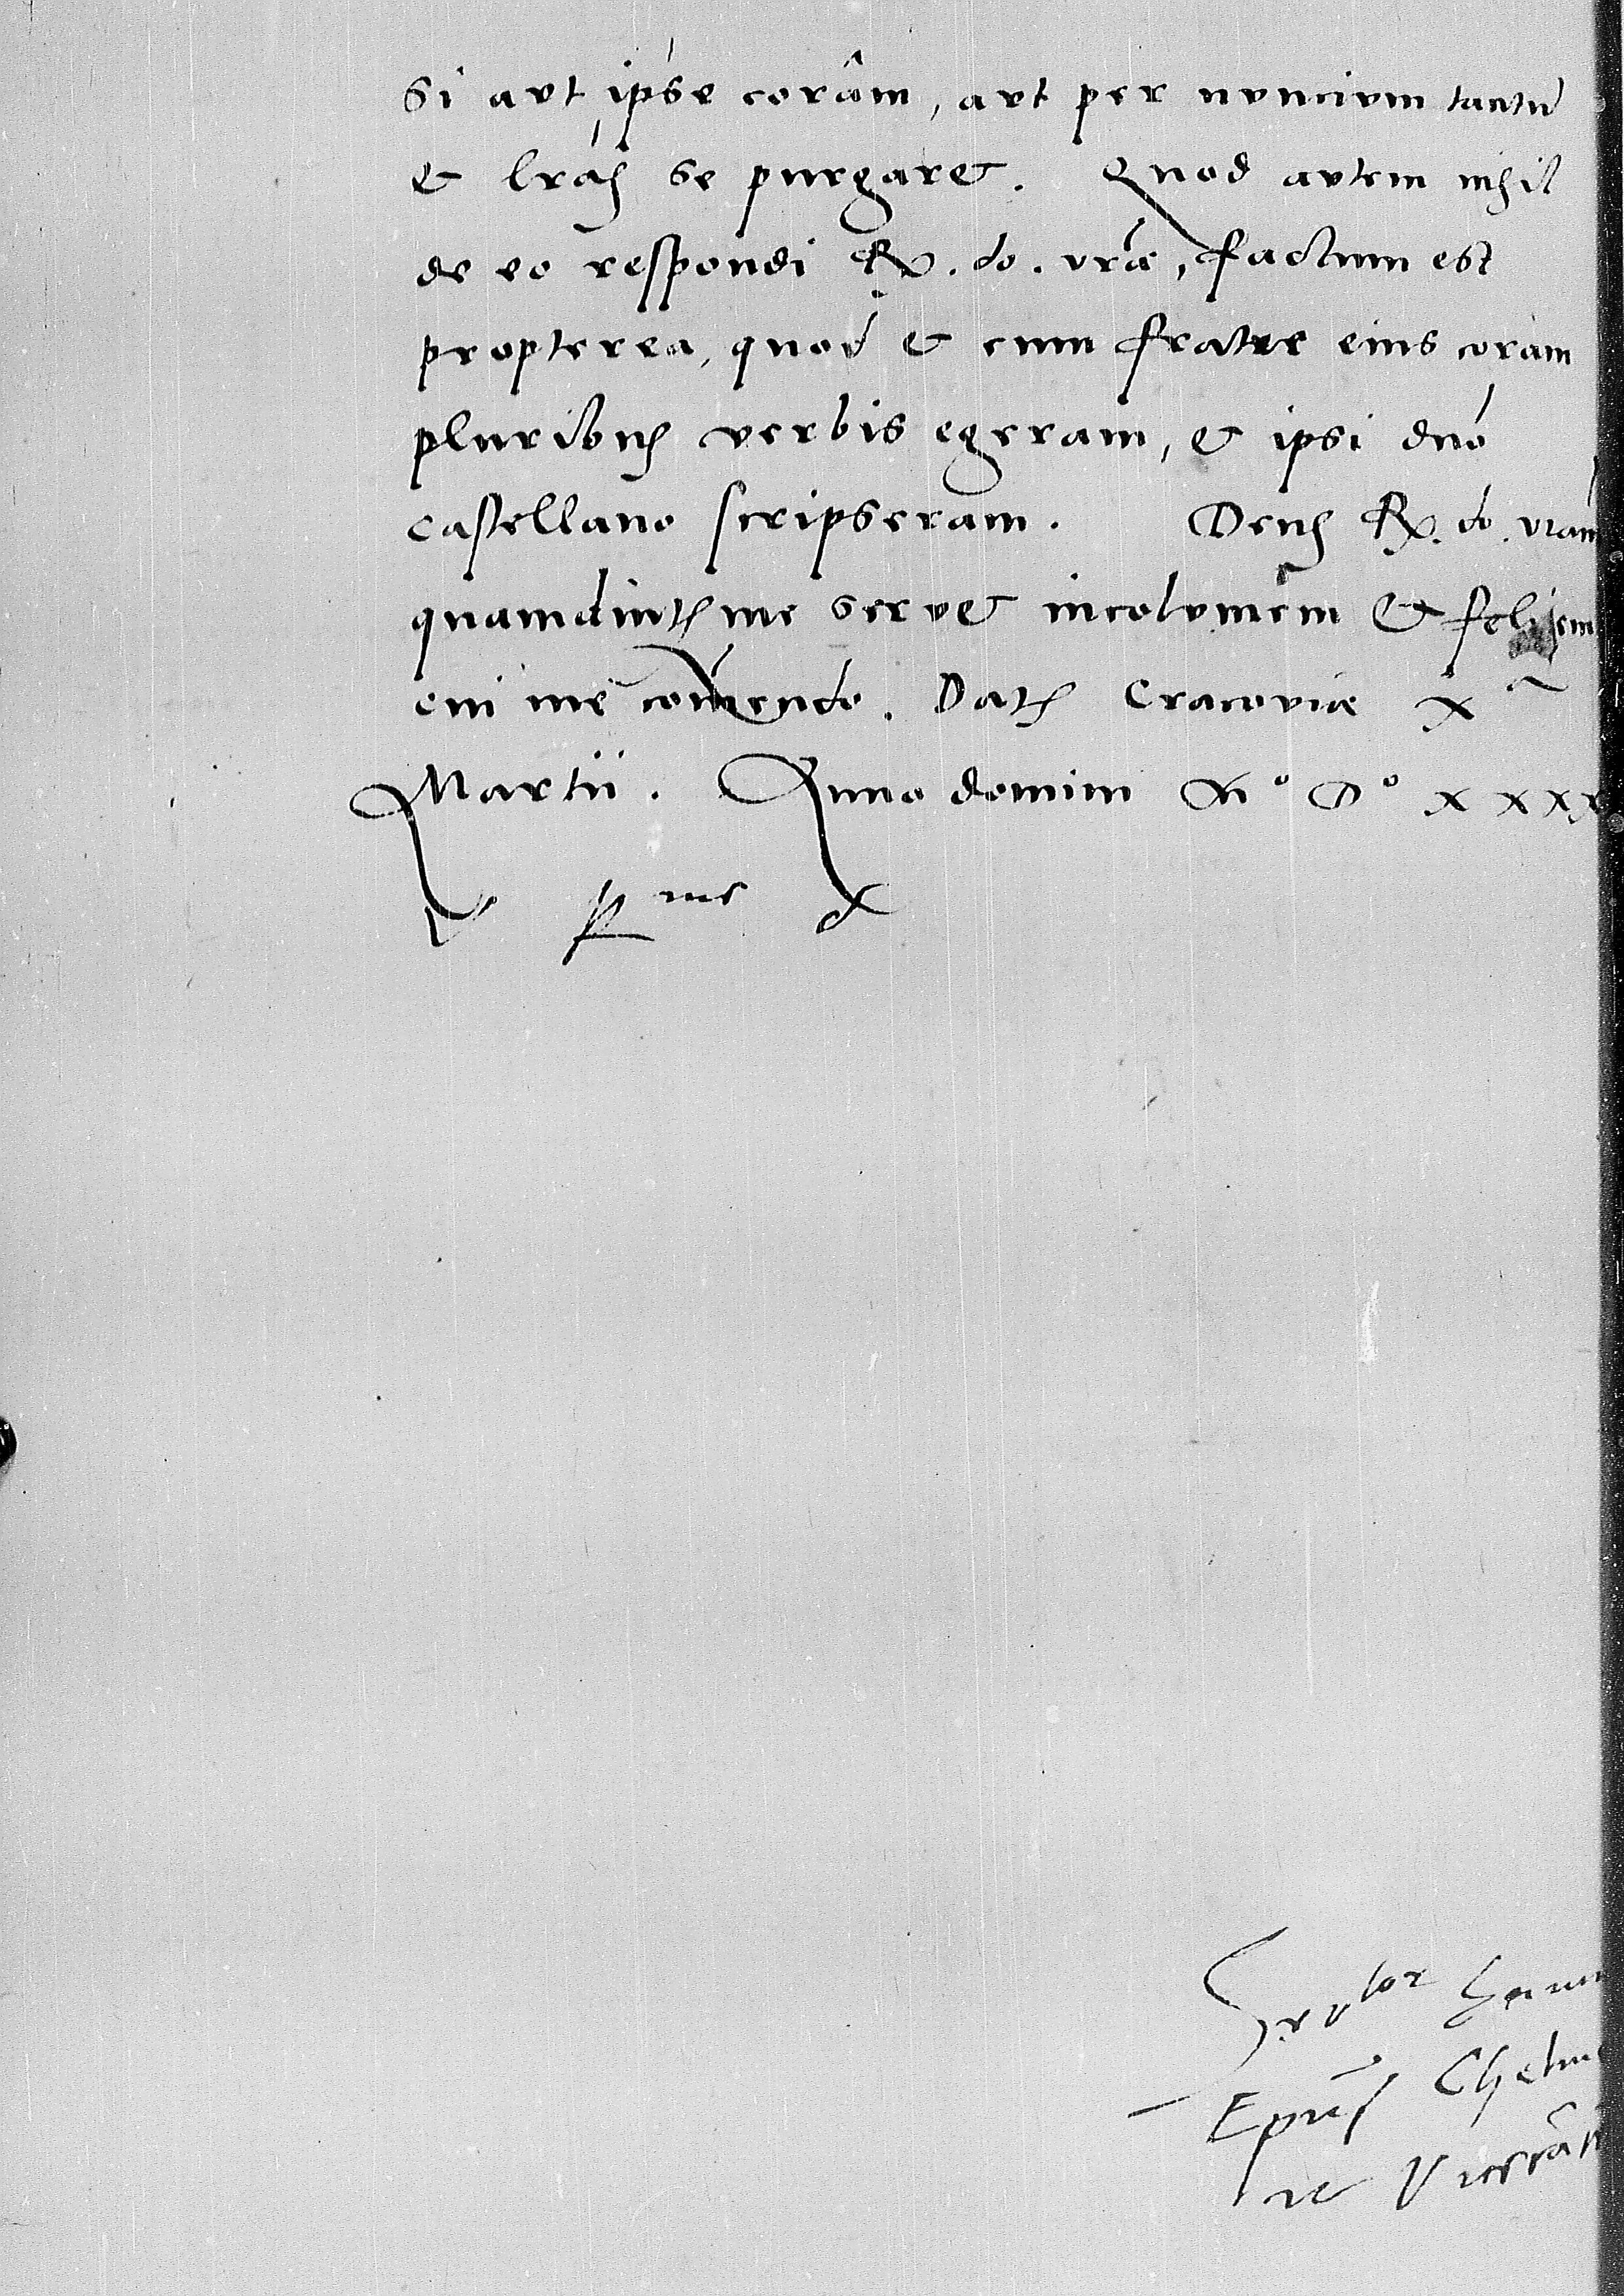 si aut ipse corâm, aut per nuncium tantũ
& lrãs se purgaret. Quod autem nihil
de eo respondi R. do. vrã, factum est
propterea, quod & cum fratre eius coram
pluribus verbis egeram, & ipsi dnõ
castellano scripseram. Deus R. do. vram
quamdiutme servet incolumem & felicem
cui me cõmendo. Dat Cracoviæ X
Martii. Anno domini M° D° XXXX
V R me d
Srvtor
Epus Chelm